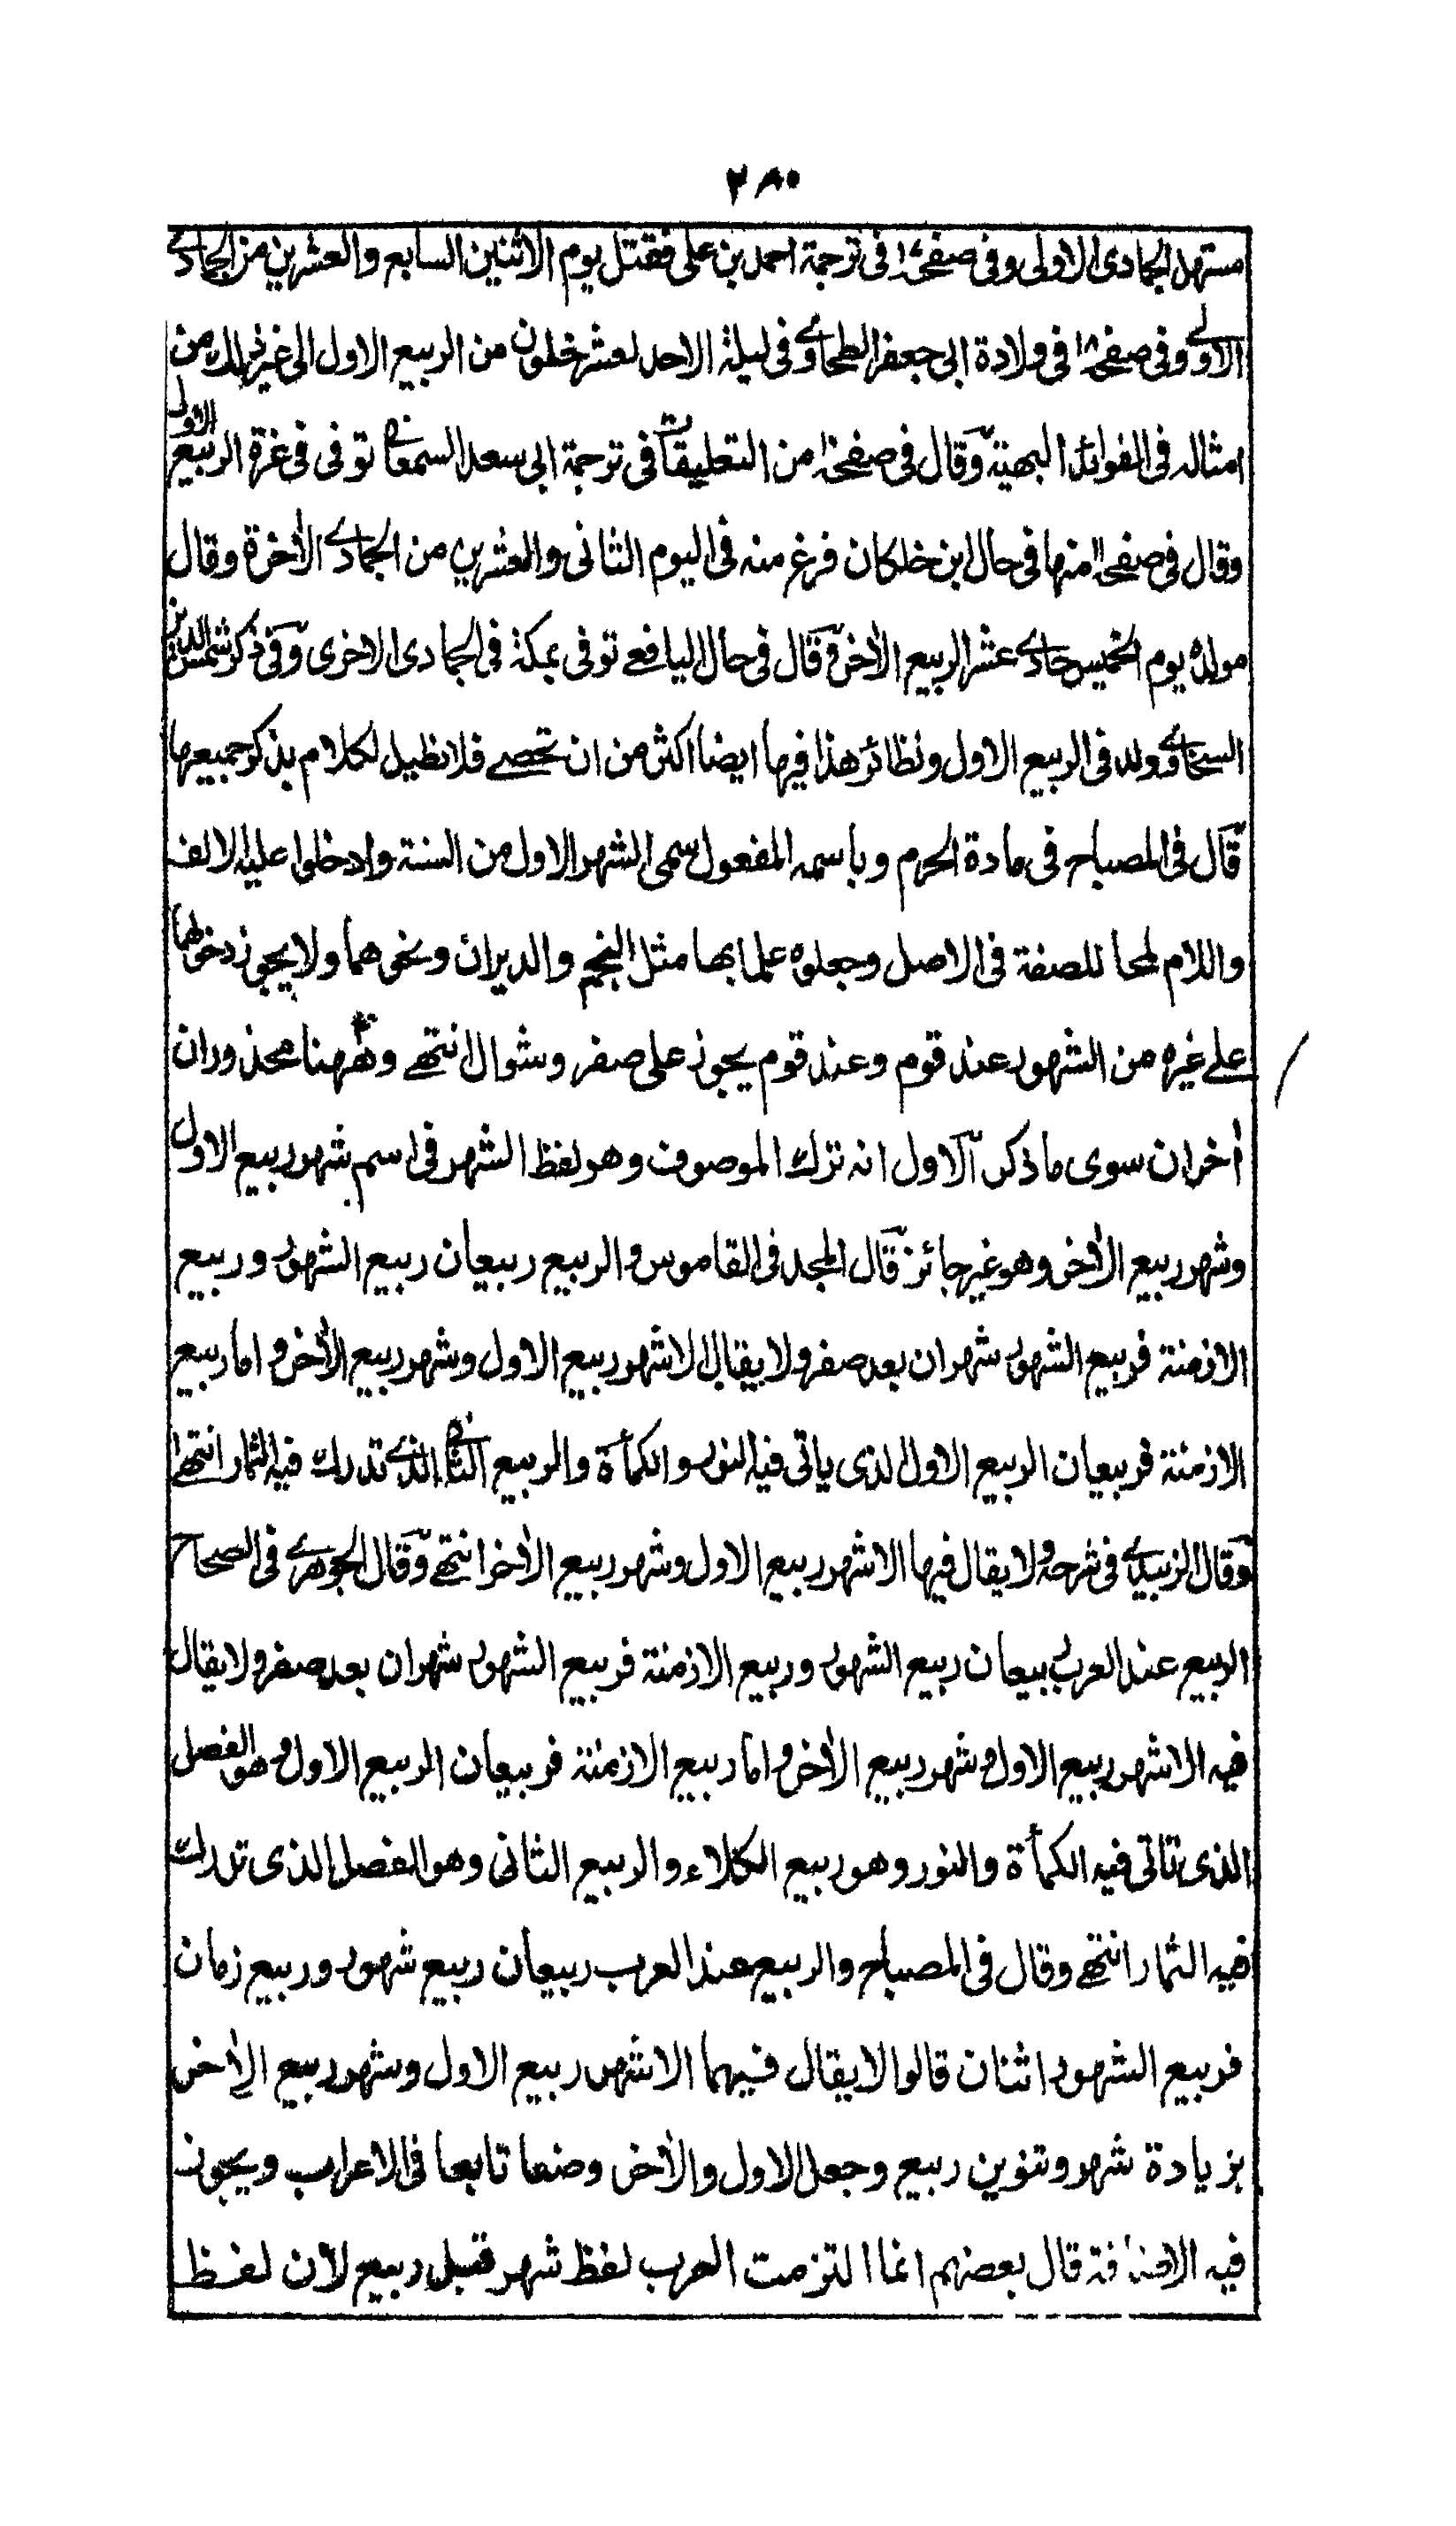 ٢٨٠
مستهل الجمادى الاولى وفى صفحة فى ترجمة احمد بن على فقتل يوم الاثنين السابع والعشرين من الجمادے
الاولے وفى صفحة فى ولادة ابى جعفر الطحاوے وفى ليلة الاحد لعشر خلون من الربيع الاول الى غير ذلك من
امثاله فى الفوائد البهية وقال فى صفحة من التعليقات فى ترجمة ابى سعد السمعانے توفى فى غرة الربيع الاولى
وقال فى صفحة منها فى حال ابن خلكان فرغ منه فى اليوم الثانى والعشرين من الجمادے الأخرة وقال
مولده يوم الخميس حادے عشر الربيع الأخر وقال فى حال اليافعے توفى بمكة فى الجمادى الاخرى وفى ذكر شمس الدين
السخاوے ولد فى الربيع الاول ونظائر هذا فيها ايضا اكثر من ان تحصے فلا نطيل الكلام بذكر جميعها
قال فى المصباح فى مادة الحرم وباسمه المفعول سمى الشهر الاول من السنة وادخلوا عليه الالف
واللام لمحا للصفة فى الاصل وجعلوه علما بهما مثل النجم والدبران ونحوهما ولا يجوز دخولهما
علے غيره من الشهور عند قوم وعند قوم يجوز على صفر وشوال انتهے وههنا محذوران
أخران سوى ما ذكر الاول انه ترك الموصوف وهو لفظ الشهر فى اسم شهر ربيع الاول
وشهر ربيع الأخر وهو غير جائز قال المجد فى القاموس والربيع ربيعان ربيع الشهور وربيع
الازمنة فربيع الشهور شهران بعد صفر ولا يقال الا شهر ربيع الاول وشهر ربيع الأخر واما ربيع
الازمنة فربيعان الربيع الاول الذى ياتى فيه النور والكمأة والربيع الثانے الذے تدرك فيه الثمار انتهے
وقال الزبيدے فى شرحه ولا يقال فيها الا شهر ربيع الاول وشهر ربيع الأخر انتهے وقال الجوهرے فى الصحاح
الربيع عند العرب ربيعان ربيع الشهور وربيع الازمنة فربيع الشهور شهران بعد صفر ولا يقال
فيه الا شهر ربيع الاول وشهر ربيع الأخر واما ربيع الازمنة فربيعان الربيع الاول وهو الفصل
الذى تاتى فيه الكمأة والنور وهو ربيع الكلاء والربيع الثانى وهو الفصل الذى تدرك
فيه الثمار انتهے وقال فى المصباح والربيع عند العرب ربيعان ربيع شهور وربيع زمان
فربيع الشهور اثنان قالوا لا يقال فيهما الا شهر ربيع الاول وشهر ربيع الأخر
بزيادة شهر وتنوين ربيع وجعل الاول والأخر وصفا تابعا فى الاعراب ويجوز
فيه الاضافة قال بعضهم انما التزمت العرب لفظ شهر قبل ربيع لأن لفظ